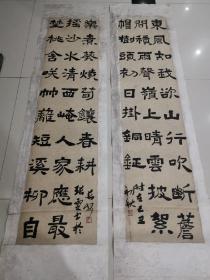 東風知我欲山行吹斷簷
間積雨聲嶺上晴雲披絮
帽樹頭初日掛銅鉦
初秋
埜桃含咲竹離短溪柳自
搖沙水清西崦人家應最
樂煮葵燒筍饟春耕